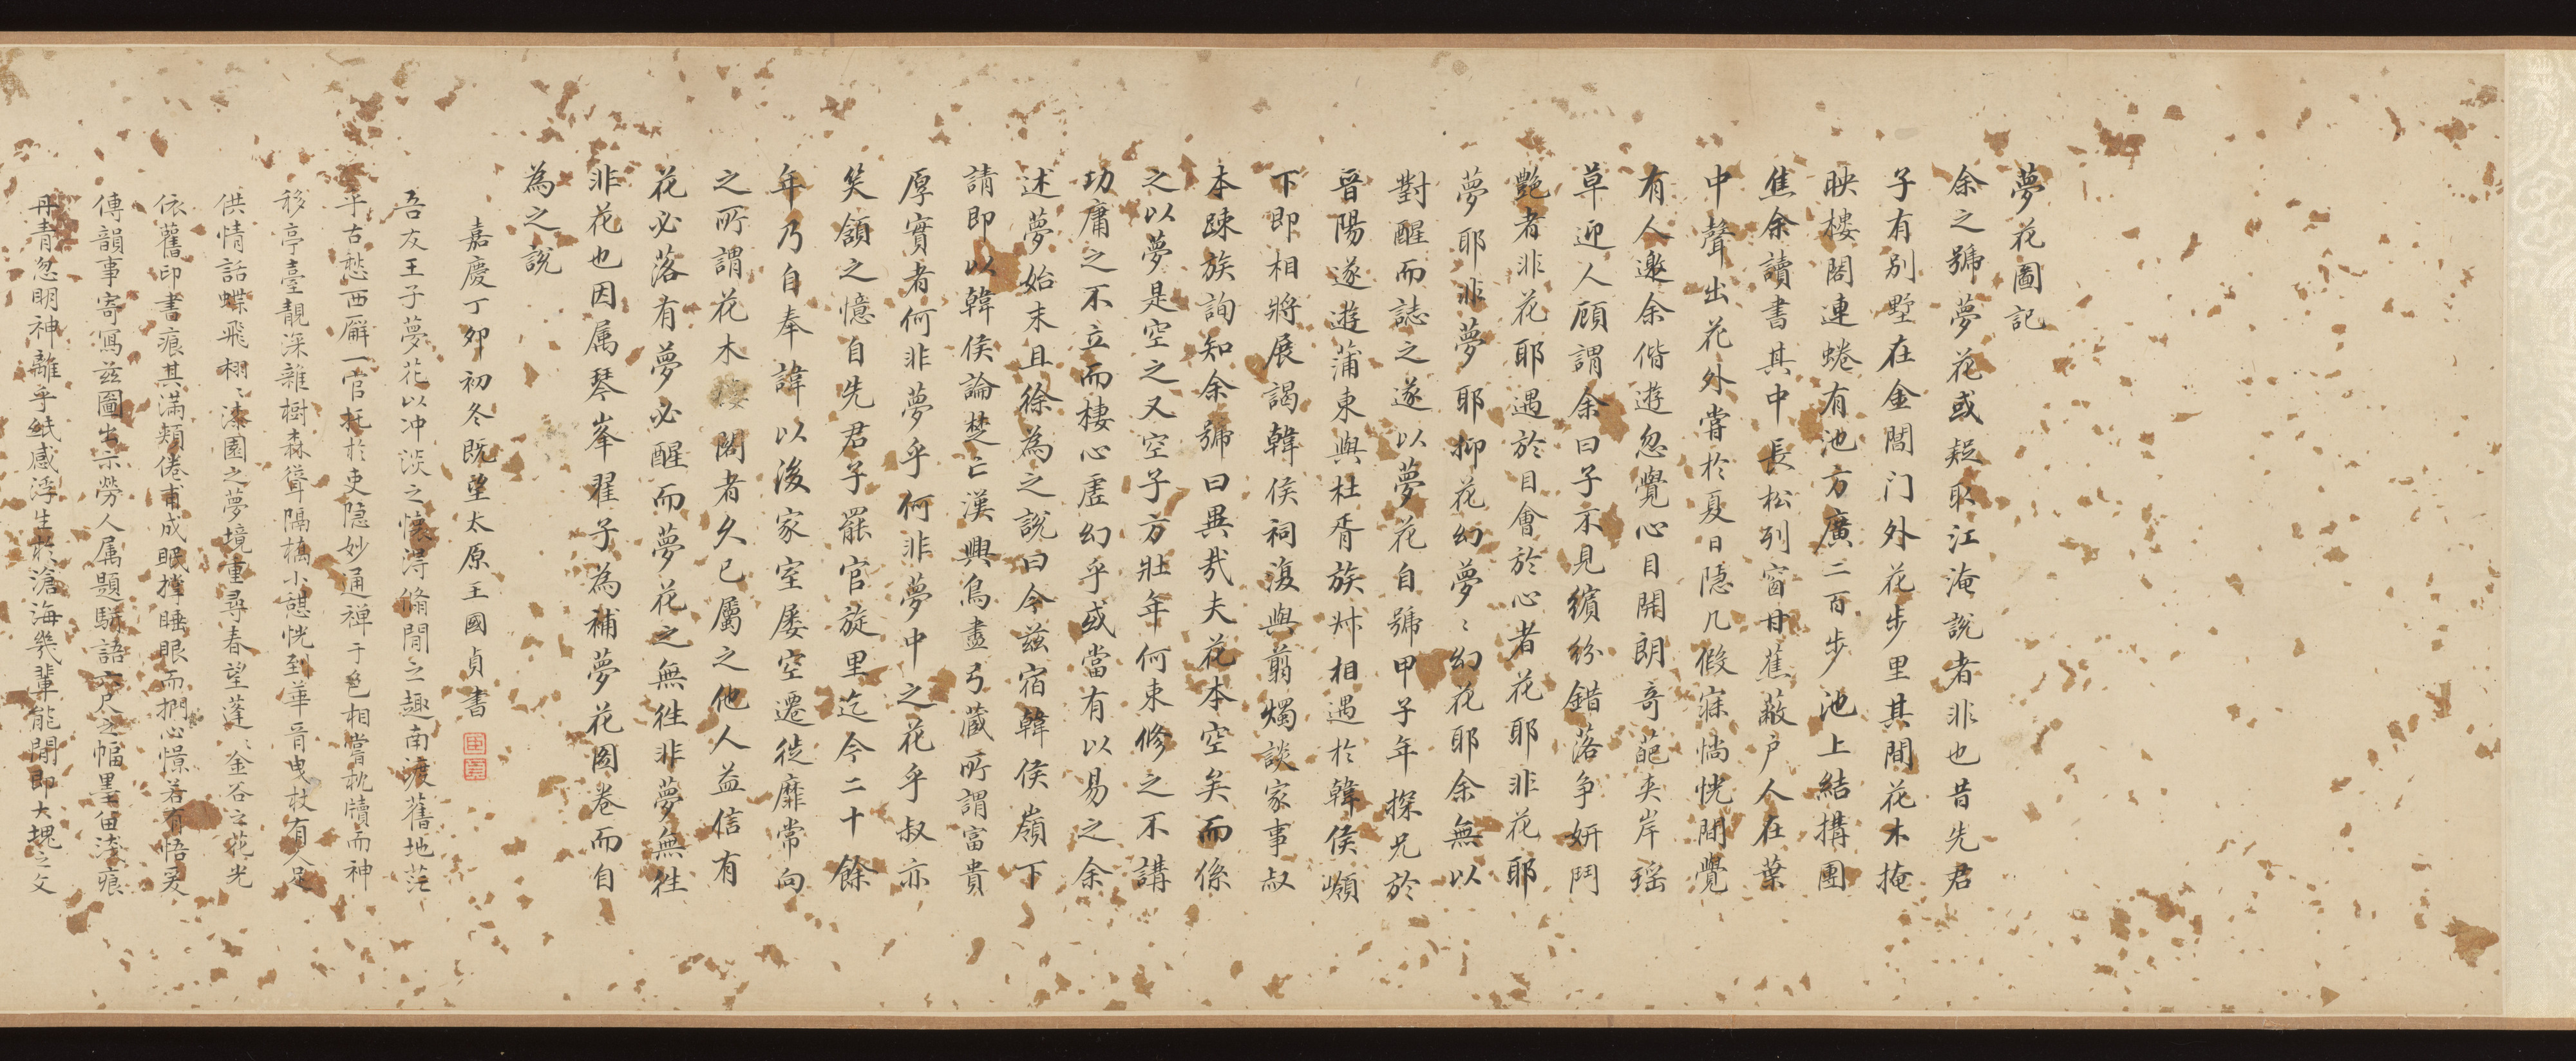 夢花圖記
余之號夢花或疑取江淹說者非也昔先君
子有別墅在金閶门外花步里其間花木掩
映樓閣連蜷有池方廣二百步池上結搆團
焦余讀書其中長松列窗甘蕉蔽户人在葉
中聲出花外嘗於夏日隐几假寐惝恍間覺
有人邀余偕遊忽覺心目開朗奇葩夹岸瑶
草迎人顧謂余曰子不見繽紛錯落争妍鬥
艷者非花耶遇於目會於心者花耶非花耶
夢耶非夢耶抑花幻夢〻幻花耶余無以
對醒而誌之遂以夢花自號甲子年探兄於
晉陽遂遊蒲東與杜胥族叔相遇於韓侯嶺
下即相將展謁韓侯祠復與翦燭談家事叔
本疎族詢知余號曰異哉夫花本空矣而係
之以夢是空之又空子方壯年何束修之不講
功庸之不立而棲心虛幻乎或當有以易之余
述夢始末且徐為之說曰今兹宿韓侯嶺下
請即以韓侯論楚亡漢興鳥盡弓藏所謂富貴
厚實者何非夢乎何非夢中之花乎叔亦
笑頷之憶自先君子罷官旋里迄今二十餘
年乃自奉諱以後家室屡空遷徙靡常向
之所謂花木樓閣者久已屬之他人益信有
花必落有夢必醒而夢花之無徃非夢無徃
非花也因属琴峯翟子為補夢花图卷而自
為之說
嘉慶丁卯初冬既望太原王國貞書
吾友王子夢花以冲淡之懐得脩閒之趣南渡舊地茫
乎古愁西廨一官托於吏隐妙通禅于色相嘗枕牘而神
移亭臺靚深雜樹森聳隔橋小憩恍到華胥曳杖有人足
供情話蝶飛栩〻漆園之夢境重尋春望蓬〻金谷之花光
依舊印書痕其滿頰倦甫成眠撑睡眼而捫心憬若有悟爰
傳韻事寄寫兹圖出示勞人属題駢語六尺之幅墨留淺痕
丹青忽明神離乎紙感浮生於滄海幾輩能閒即大塊之文